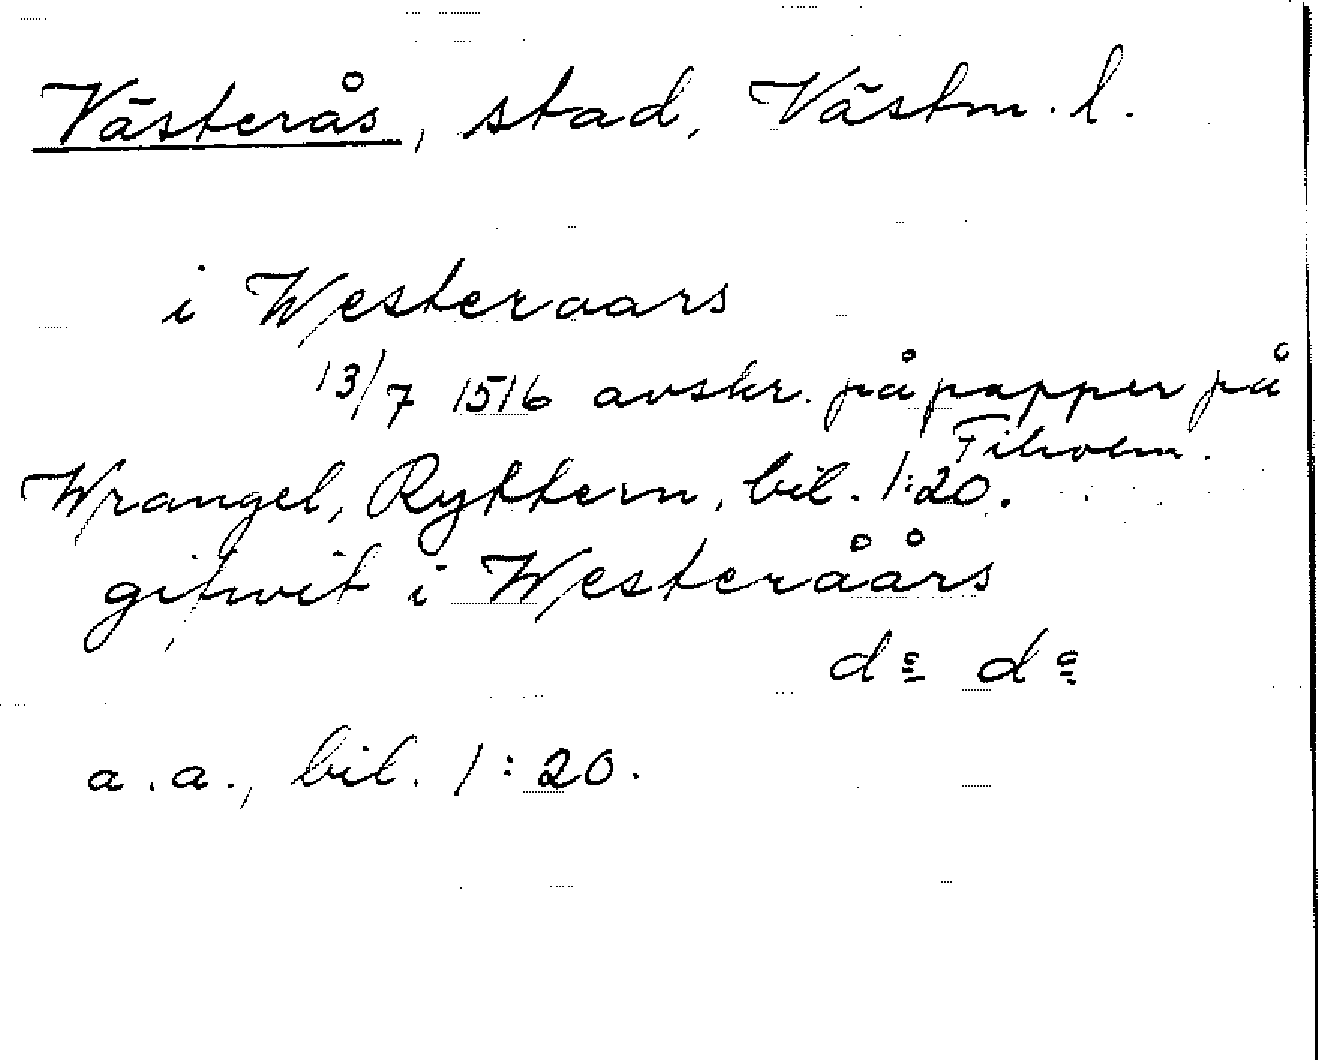 Västerås, stad, Västm. l.
i Westeraars
13/7 1516 avskr. på papper på
Fiholm.
Wrangel, Ryttern, bil. 1:20.
gifwit i Westeråårs
do do
a.a., bil. 1:20.